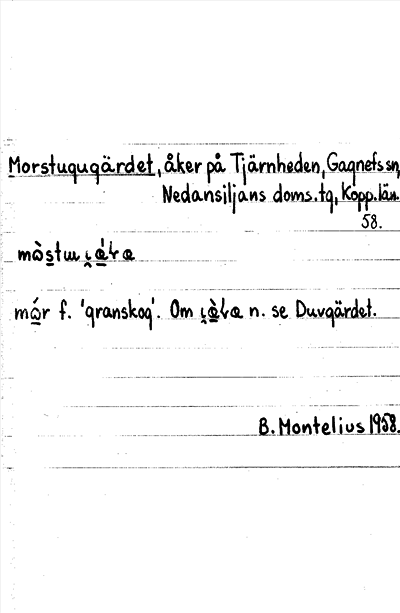 Morstugugärdet, åker på Tjärnheden, Gagnefs sn,
Nedansiljans doms.tg, Kopp. län.
58.
mår f. 'granskog'. Om n. se Duvgärdet.
B. Montelius 1958.